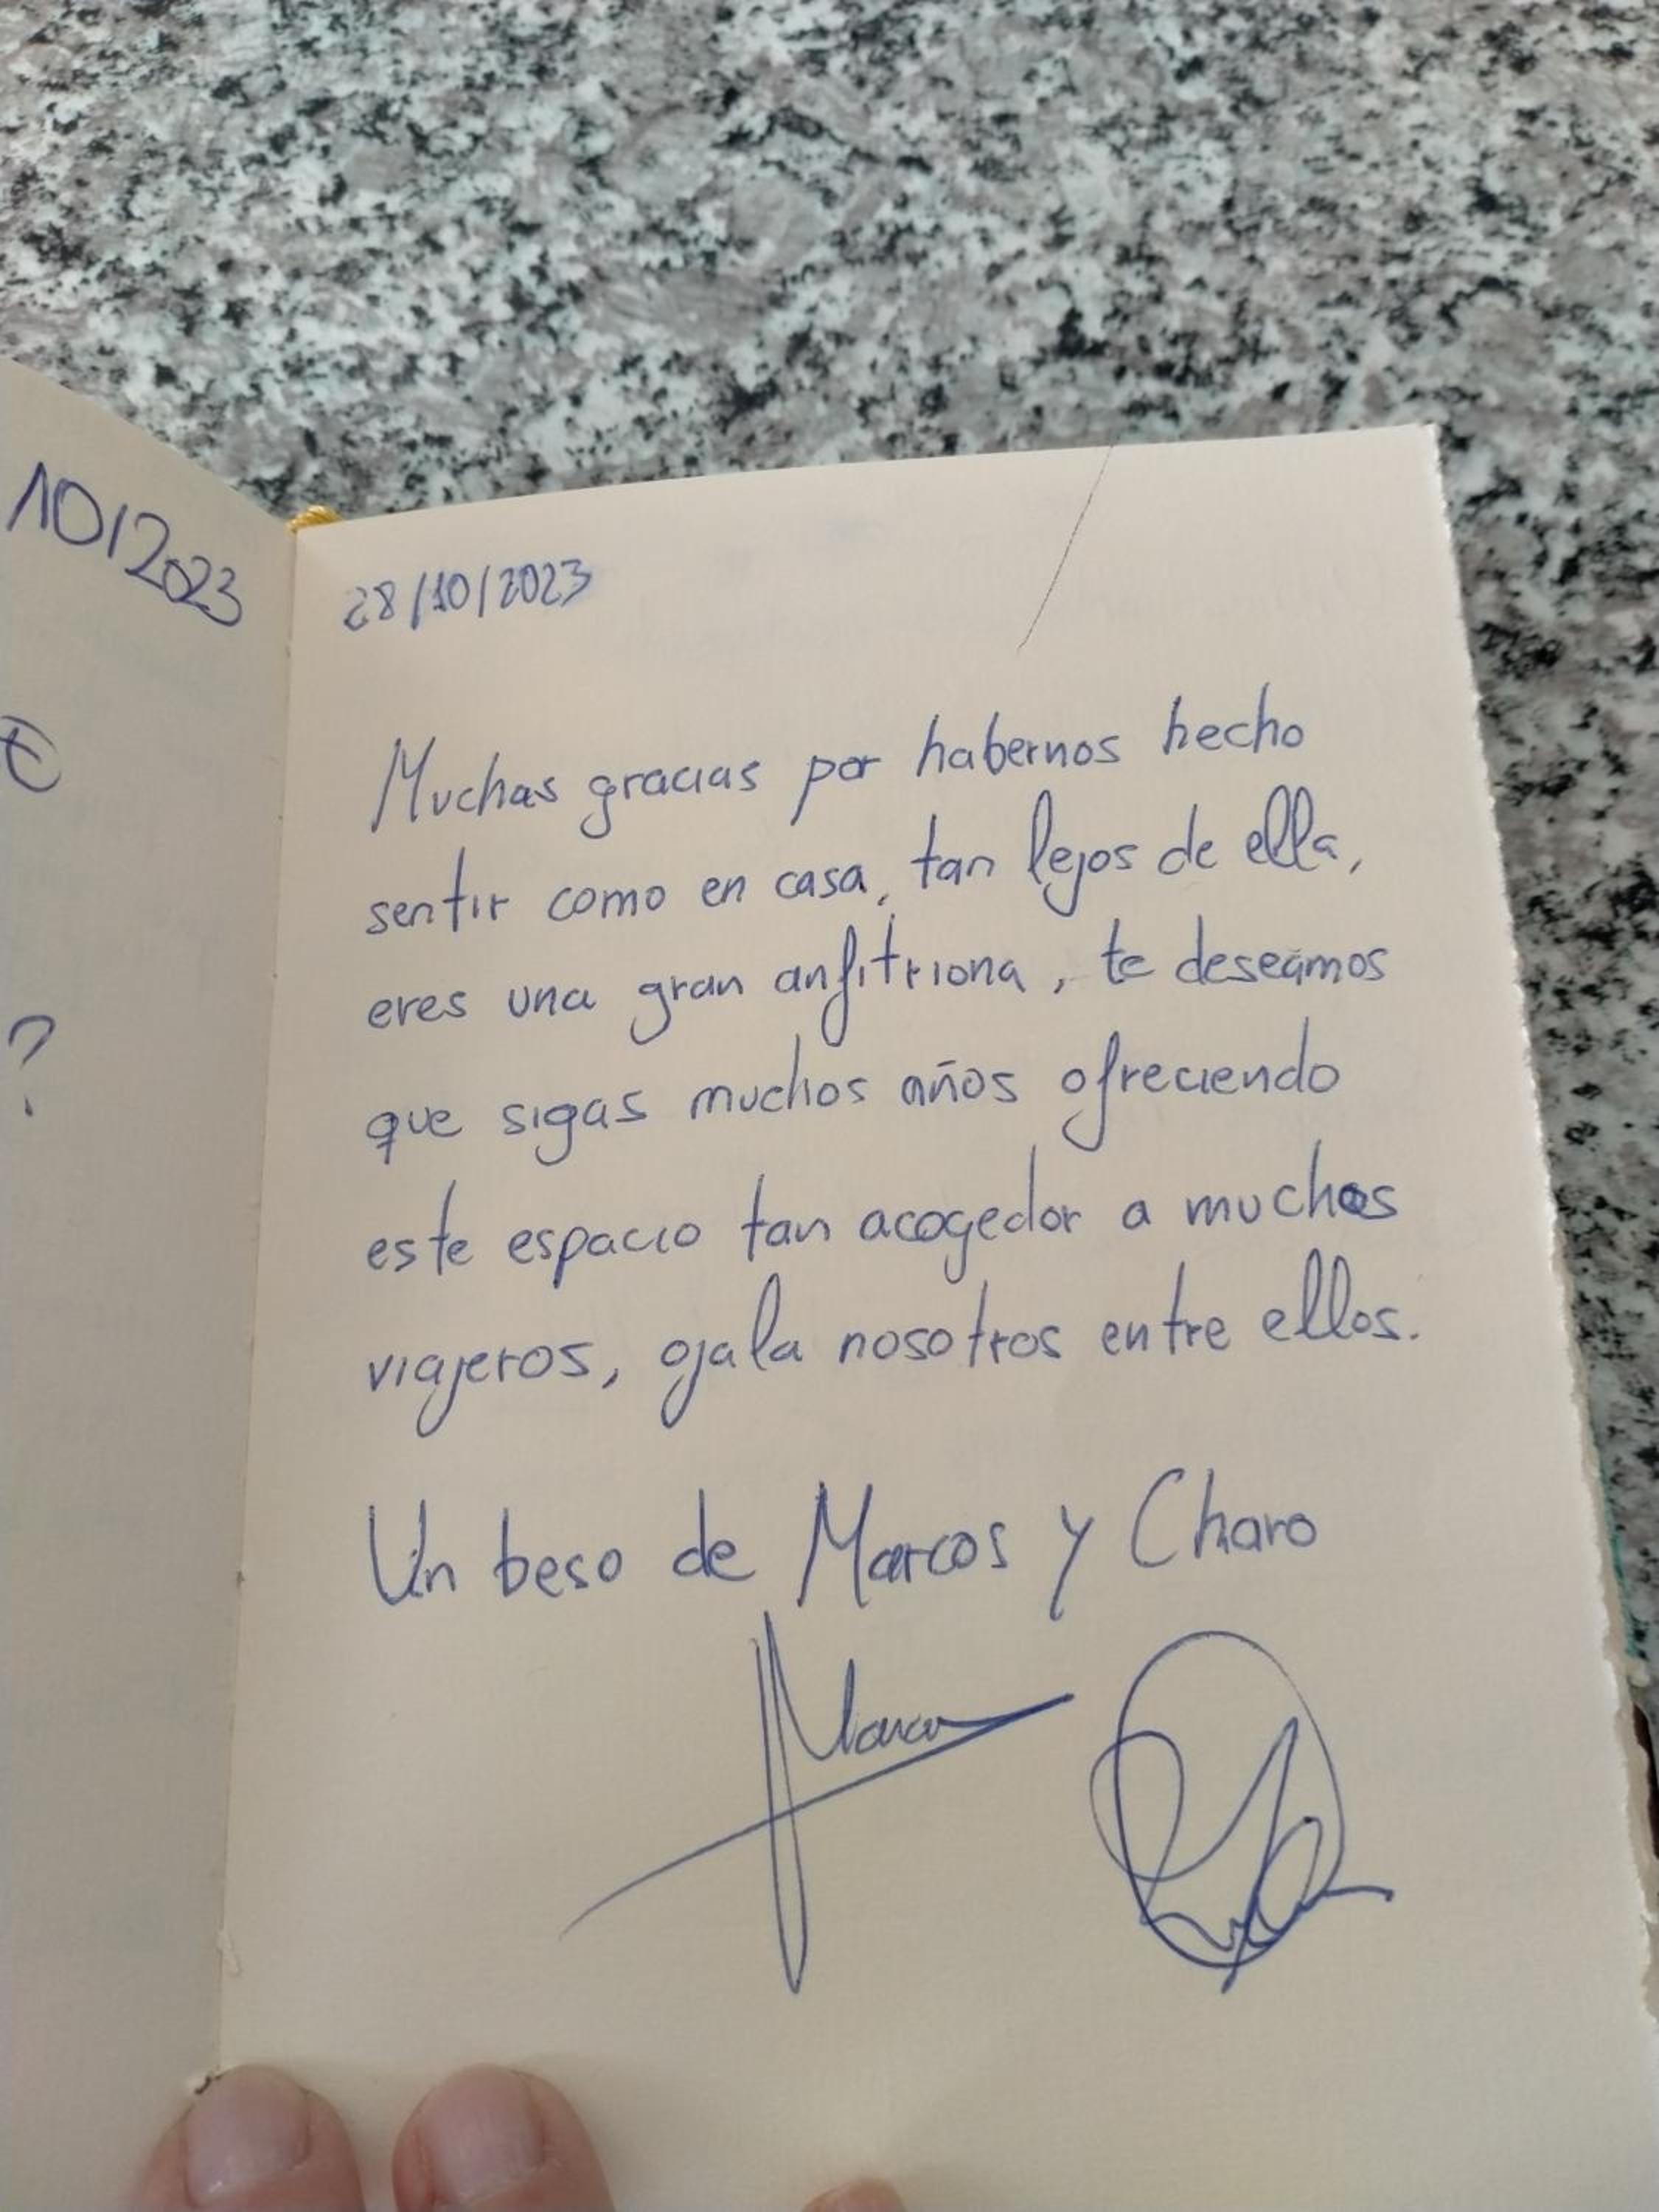 10/2023
?
28/10/2023
Muchas gracias por habernos hecho
sentir como en casa, tan lejos de ella,
eres una gran anfitriona, te deseamos
que sigas muchos años ofreciendo
este espacio tan acogedor a muchos
viajeros, ojala nosotros entre ellos.
Un beso de Marcos y Charo
Marcos